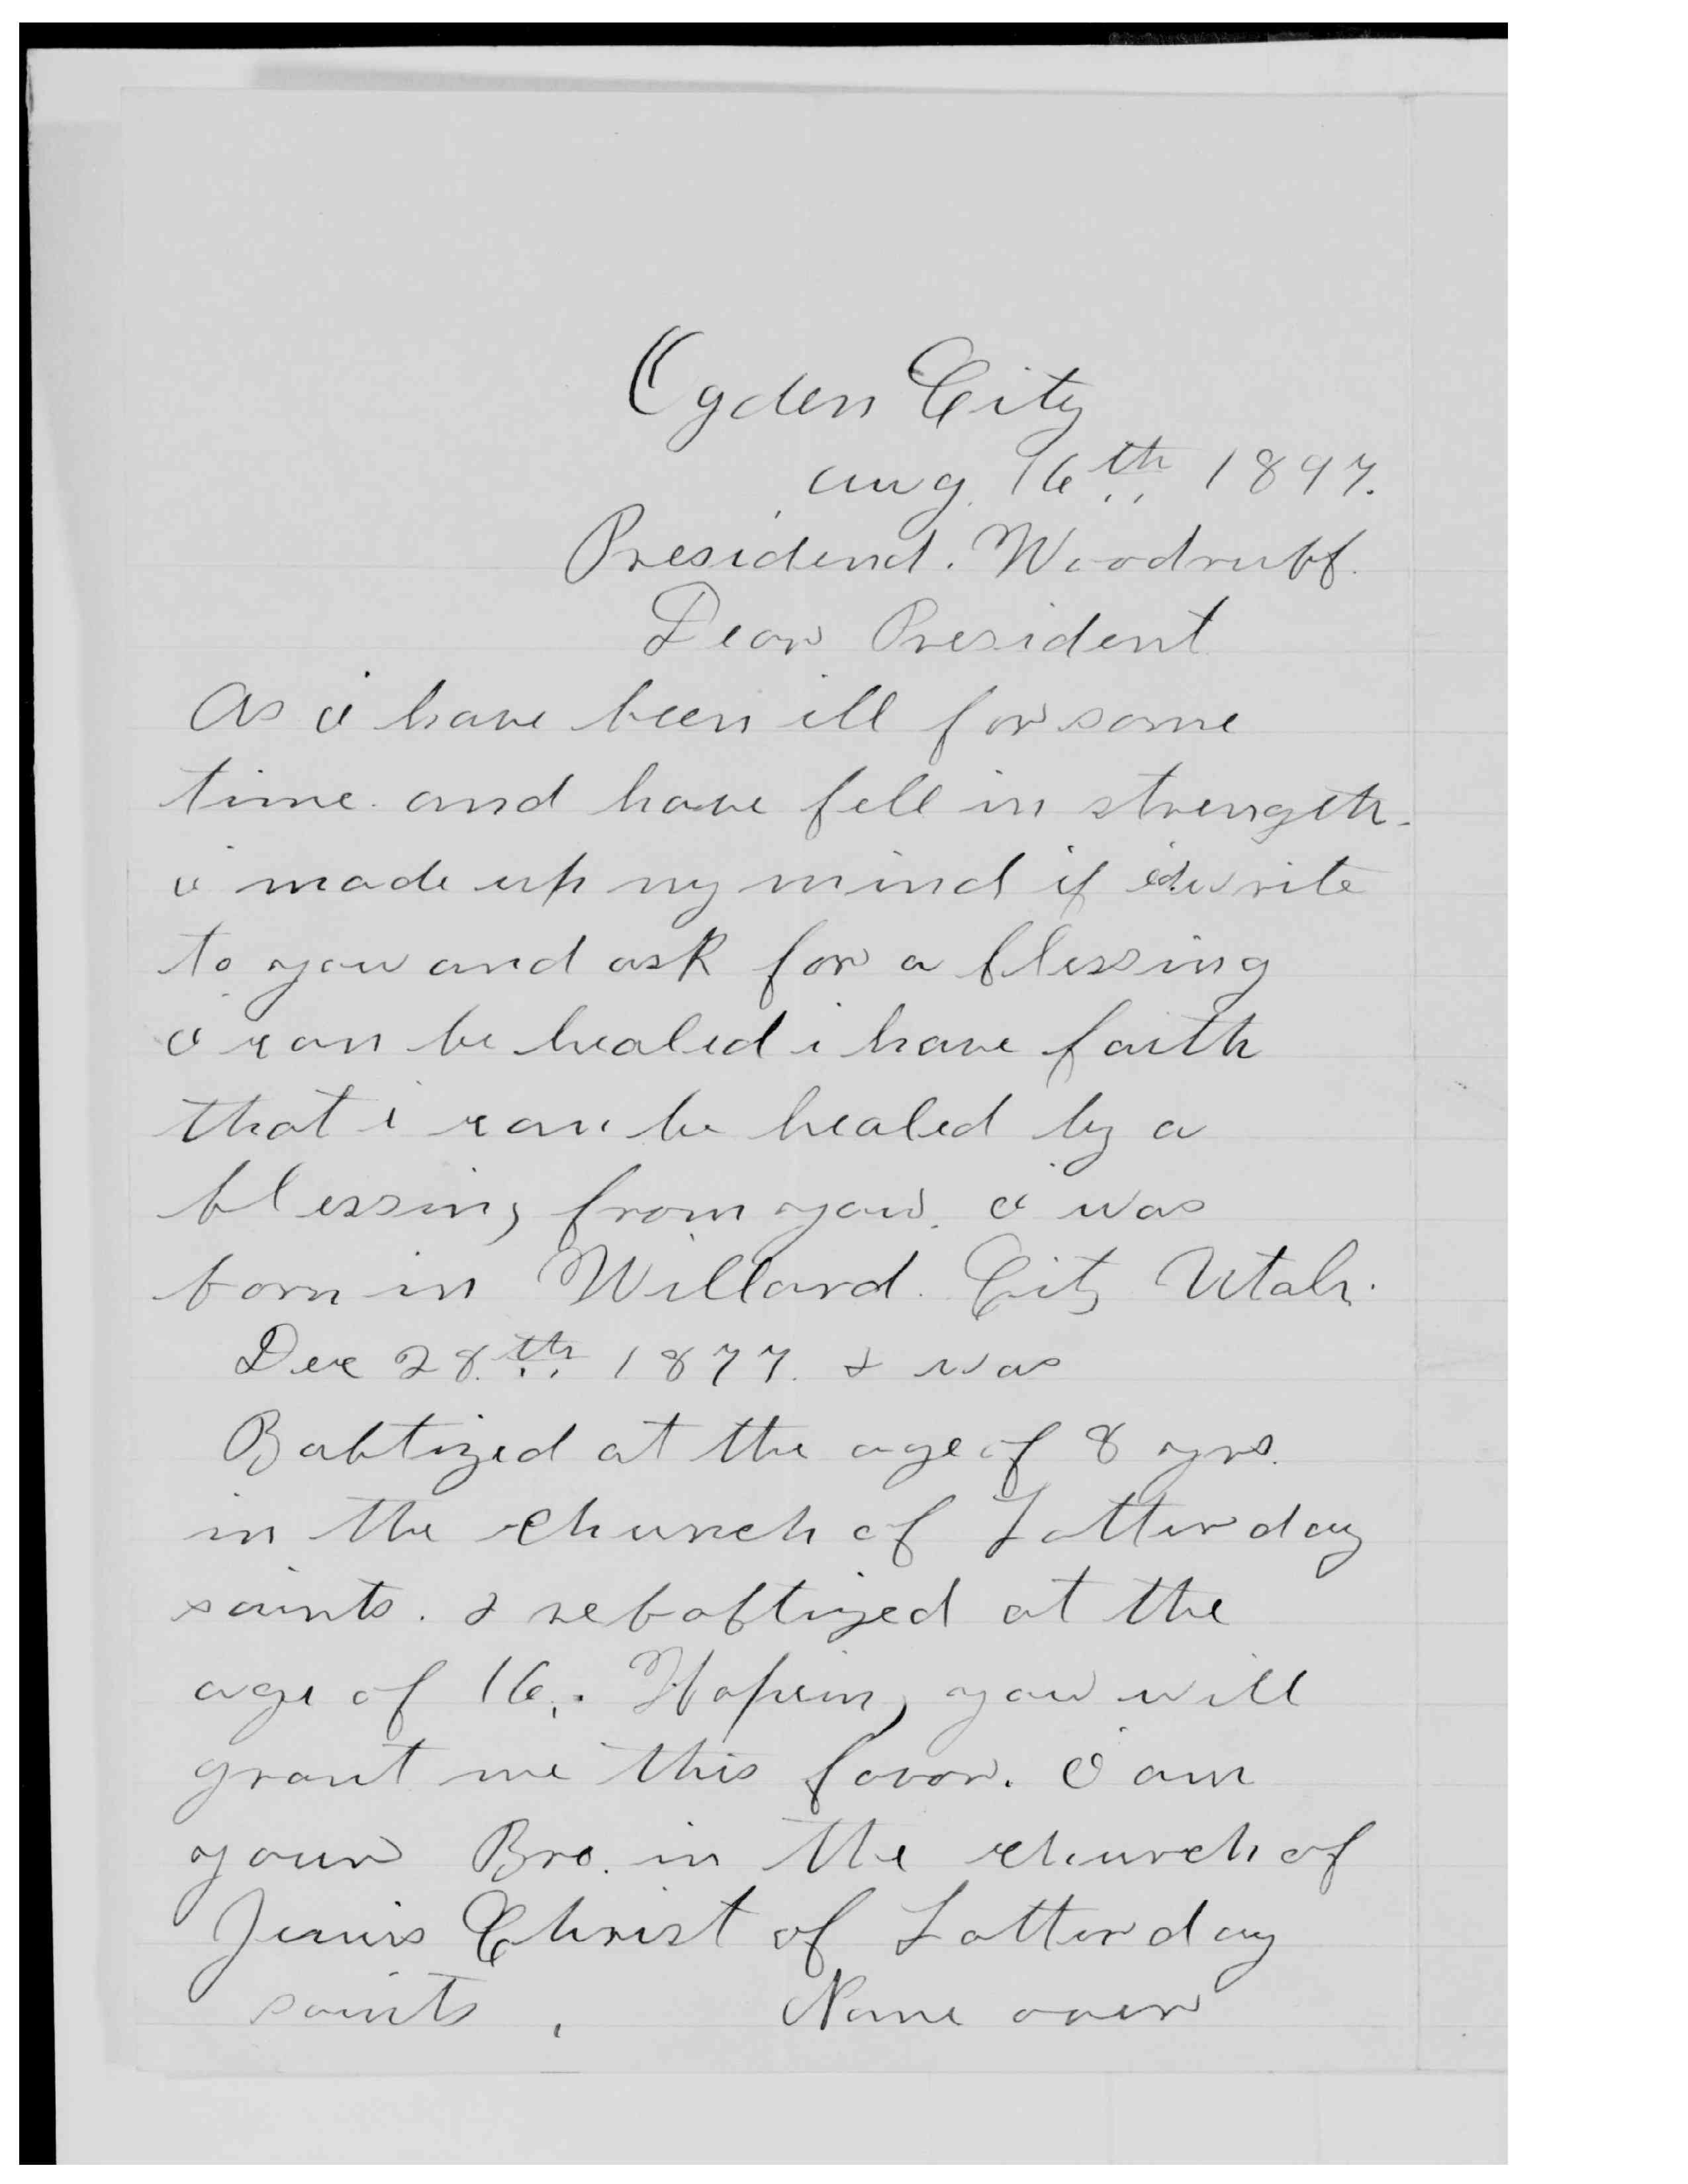 Ogden City
aug. 16th 1897.
Presidend. Woodruff.
Dear President
As i have been ill for some
time. and have fell in strength.
i made up my mind if i write
to you and ask for a blessing
i can be healed i have faith
that i can be healed by a
blessing from you. i was
born in Willard. City Utah.
Dec 28.th 1877. & was
Babtized at the age of 8 yrs.
in the church of Latter day
saints. & rebabtized at the
age of 16. Hopeing you will
grant me this favor. I am
your Bro. in the church of
Jesus Christ of Latter day
saints. Name over